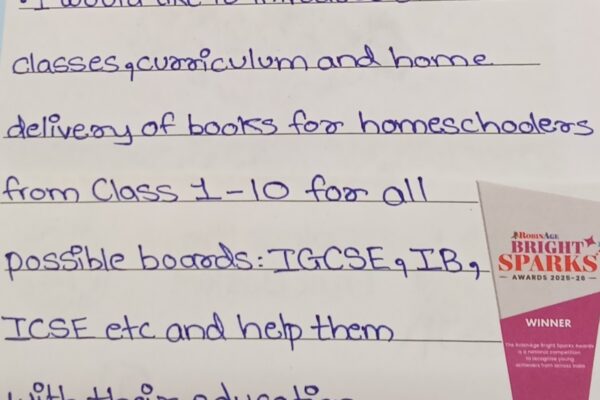 I would like to
classes, curriculum and home
delivery of books for homeschoolers
from Class 1-10 for all
possible boards: IGCSE, IB,
ICSE etc and help them
with their education
ROBINAGE
BRIGHT
SPARKS
AWARDS 2025-26
WINNER
The RobinAge Bright Sparks Awards
is a national competition
to recognise young
achievers from across India